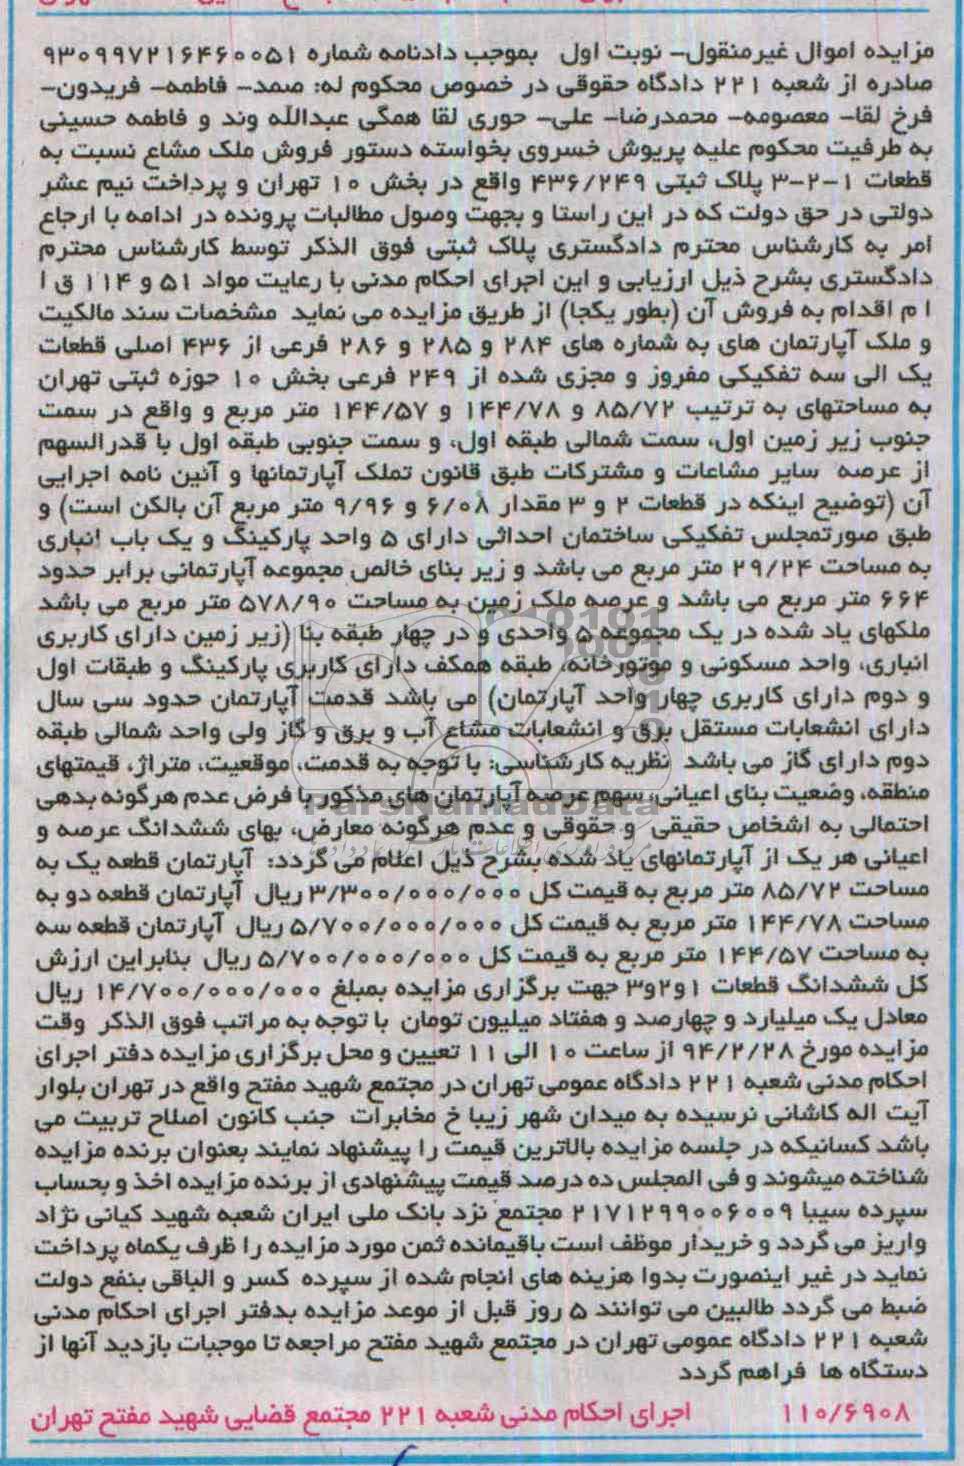 مزایده اموال غیرمنقول- نوبت اول بموجب دادنامه شماره ۹۳۰۹۹۷۲۱۶۴۶۰۰۵۱
صادره از شعبه ۲۲۱ دادگاه حقوقی در خصوص محکوم له: صمد- فاطمه- فریدون-
فرخ لقا- معصومه- محمدرضا- علی- حوری لقا همگی عبدالله وند و فاطمه حسینی
به طرفیت محکوم علیه پریوش خسروی بخواسته دستور فروش ملک مشاع نسبت به
قطعات ۱-۲-۳ پلاک ثبتی ۴۳۶/۲۴۹ واقع در بخش ۱۰ تهران و پرداخت نیم عشر
دولتی در حق دولت که در این راستا و بجهت وصول مطالبات پرونده در ادامه با ارجاع
امر به کارشناس محترم دادگستری پلاک ثبتی فوق الذکر توسط کارشناس محترم
دادگستری بشرح ذیل ارزیابی و این اجرای احکام مدنی با رعایت مواد ۵۱ و ۱۱۴ ق ا
ا م اقدام به فروش آن (بطور یکجا) از طریق مزایده می نماید مشخصات سند مالکیت
و ملک آپارتمان های به شماره های ۲۸۴ و ۲۸۵ و ۲۸۶ فرعی از ۴۳۶ اصلی قطعات
یک الی سه تفکیکی مفروز و مجزی شده از ۲۴۹ فرعی بخش ۱۰ حوزه ثبتی تهران
به مساحتهای به ترتیب ۸۵/۷۲ و ۱۴۴/۷۸ و ۱۴۴/۵۷ متر مربع و واقع در سمت
جنوب زیر زمین اول، سمت شمالی طبقه اول، و سمت جنوبی طبقه اول با قدرالسهم
از عرصه سایر مشاعات و مشترکات طبق قانون تملک آپارتمانها و آئین نامه اجرایی
آن (توضیح اینکه در قطعات ۲ و ۳ مقدار ۶/۰۸ و ۹/۹۶ متر مربع آن بالکن است) و
طبق صورتمجلس تفکیکی ساختمان احداثی دارای ۵ واحد پارکینگ و یک باب انباری
به مساحت ۲۹/۲۴ متر مربع می باشد و زیر بنای خالص مجموعه آپارتمانی برابر حدود
۶۶۴ متر مربع می باشد و عرصه ملک زمین به مساحت ۵۷۸/۹۰ متر مربع می باشد
ملکهای یاد شده در یک مجموعه ۵ واحدی و در چهار طبقه بنا (زیر زمین دارای کاربری
انباری، واحد مسکونی و موتورخانه، طبقه همکف دارای کاربری پارکینگ و طبقات اول
و دوم دارای کاربری چهار واحد آپارتمان) می باشد قدمت آپارتمان حدود سی سال
دارای انشعابات مستقل برق و انشعابات مشاع آب و برق و گاز ولی واحد شمالی طبقه
دوم دارای گاز می باشد نظریه کارشناسی: با توجه به قدمت، موقعیت، متراژ، قیمتهای
منطقه، وضعیت بنای اعیانی، سهم عرصه آپارتمان های مذکور با فرض عدم هرگونه بدهی
احتمالی به اشخاص حقیقی و حقوقی و عدم هرگونه معارض، بهای ششدانگ عرصه و
اعیانی هر یک از آپارتمانهای یاد شده بشرح ذیل اعلام می گردد: آپارتمان قطعه یک به
مساحت ۸۵/۷۲ متر مربع به قیمت کل ۳/۳۰۰/۰۰۰/۰۰۰ ریال آپارتمان قطعه دو به
مساحت ۱۴۴/۷۸ متر مربع به قیمت کل ۵/۷۰۰/۰۰۰/۰۰۰ ریال آپارتمان قطعه سه
به مساحت ۱۴۴/۵۷ متر مربع به قیمت کل ۵/۷۰۰/۰۰۰/۰۰۰ ریال بنابراین ارزش
کل ششدانگ قطعات ۱و۲و۳ جهت برگزاری مزایده بمبلغ ۱۴/۷۰۰/۰۰۰/۰۰۰ ریال
معادل یک میلیارد و چهارصد و هفتاد میلیون تومان با توجه به مراتب فوق الذکر وقت
مزایده مورخ ۹۴/۲/۲۸ از ساعت ۱۰ الی ۱۱ تعیین و محل برگزاری مزایده دفتر اجرای
احکام مدنی شعبه ۲۲۱ دادگاه عمومی تهران در مجتمع شهید مفتح واقع در تهران بلوار
آیت اله کاشانی نرسیده به میدان شهر زیبا خ مخابرات جنب کانون اصلاح تربیت می
باشد کسانیکه در جلسه مزایده بالاترین قیمت را پیشنهاد نمایند بعنوان برنده مزایده
شناخته میشوند و فی المجلس ده درصد قیمت پیشنهادی از برنده مزایده اخذ و بحساب
سپرده سیبا ۲۱۷۱۲۹۹۰۰۶۰۰۹ مجتمع نزد بانک ملی ایران شعبه شهید کیانی نژاد
واریز می گردد و خریدار موظف است باقیمانده ثمن مورد مزایده را ظرف یکماه پرداخت
نماید در غیر اینصورت بدوا هزینه های انجام شده از سپرده کسر و الباقی بنفع دولت
ضبط می گردد طالبین می توانند ۵ روز قبل از موعد مزایده بدفتر اجرای احکام مدنی
شعبه ۲۲۱ دادگاه عمومی تهران در مجتمع شهید مفتح مراجعه تا موجبات بازدید آنها از
دستگاه ها فراهم گردد
۱۱۰/۶۹۰۸ اجرای احکام مدنی شعبه ۲۲۱ مجتمع قضایی شهید مفتح تهران
ParsNamadData